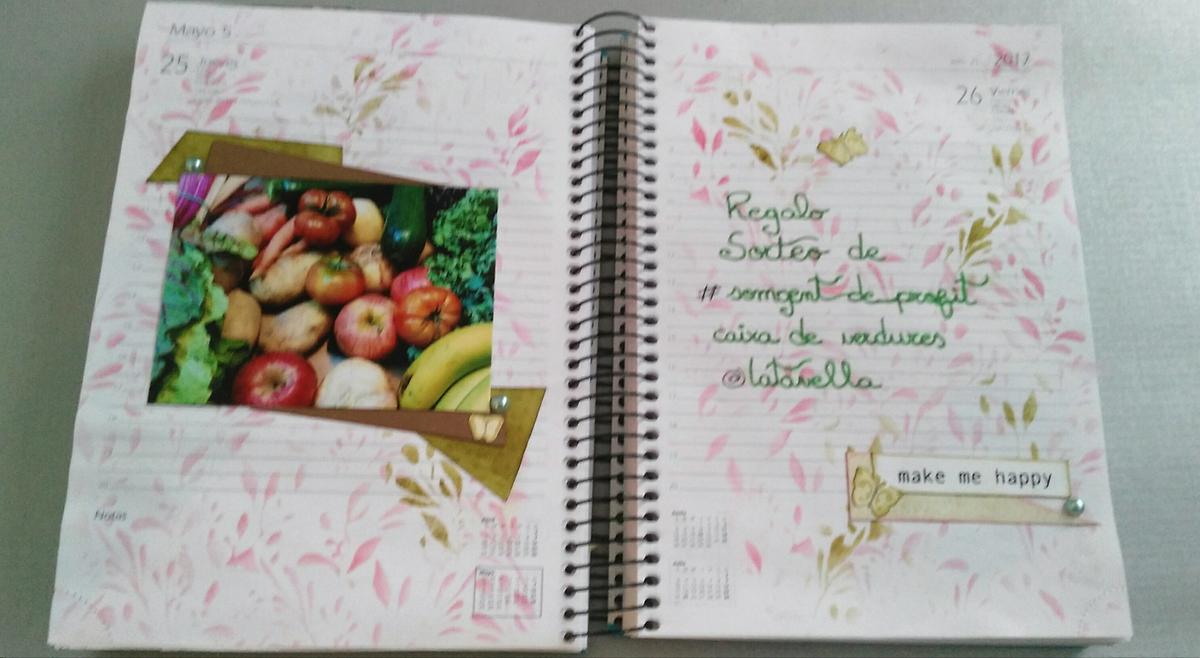 Mayo 5
25
Notas
2017
26 Viernes
Regalo
Sorteo de
# somgent de profit
caixa de verdures
@latavella
make me happy